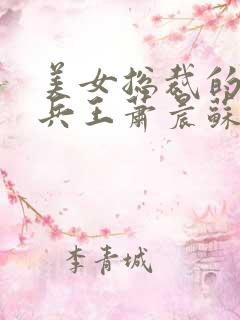 美女总裁的
兵王萧晨蘇
李青城